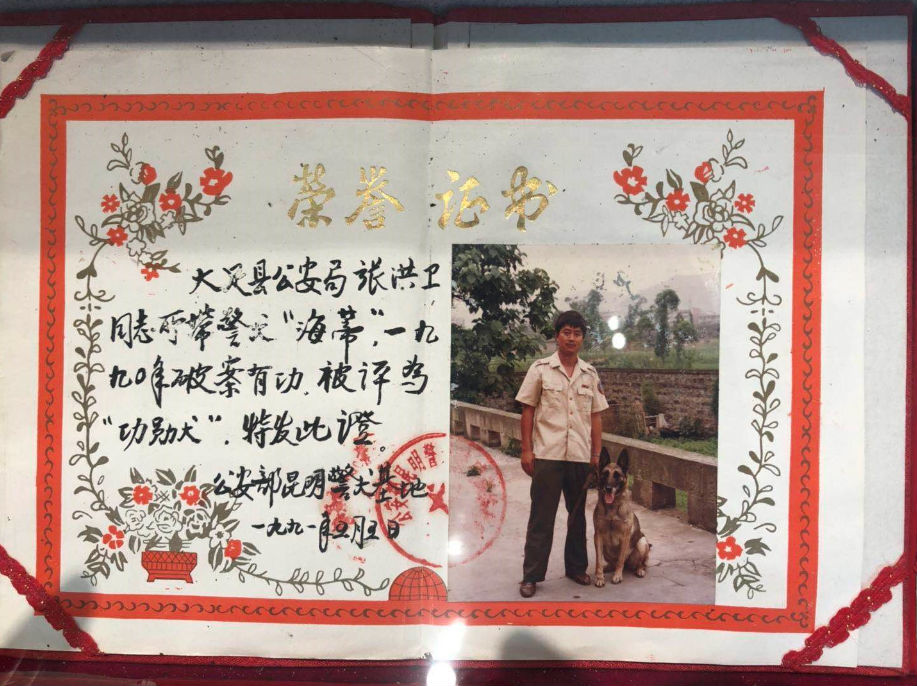 荣誉证书
大足县公安局张洪卫
同志所带警犬“海蒂”,一九
九〇年破案有功,被评为
“功勋犬”,特发此證。
公安部昆明警犬基地
一九九一年 月 日